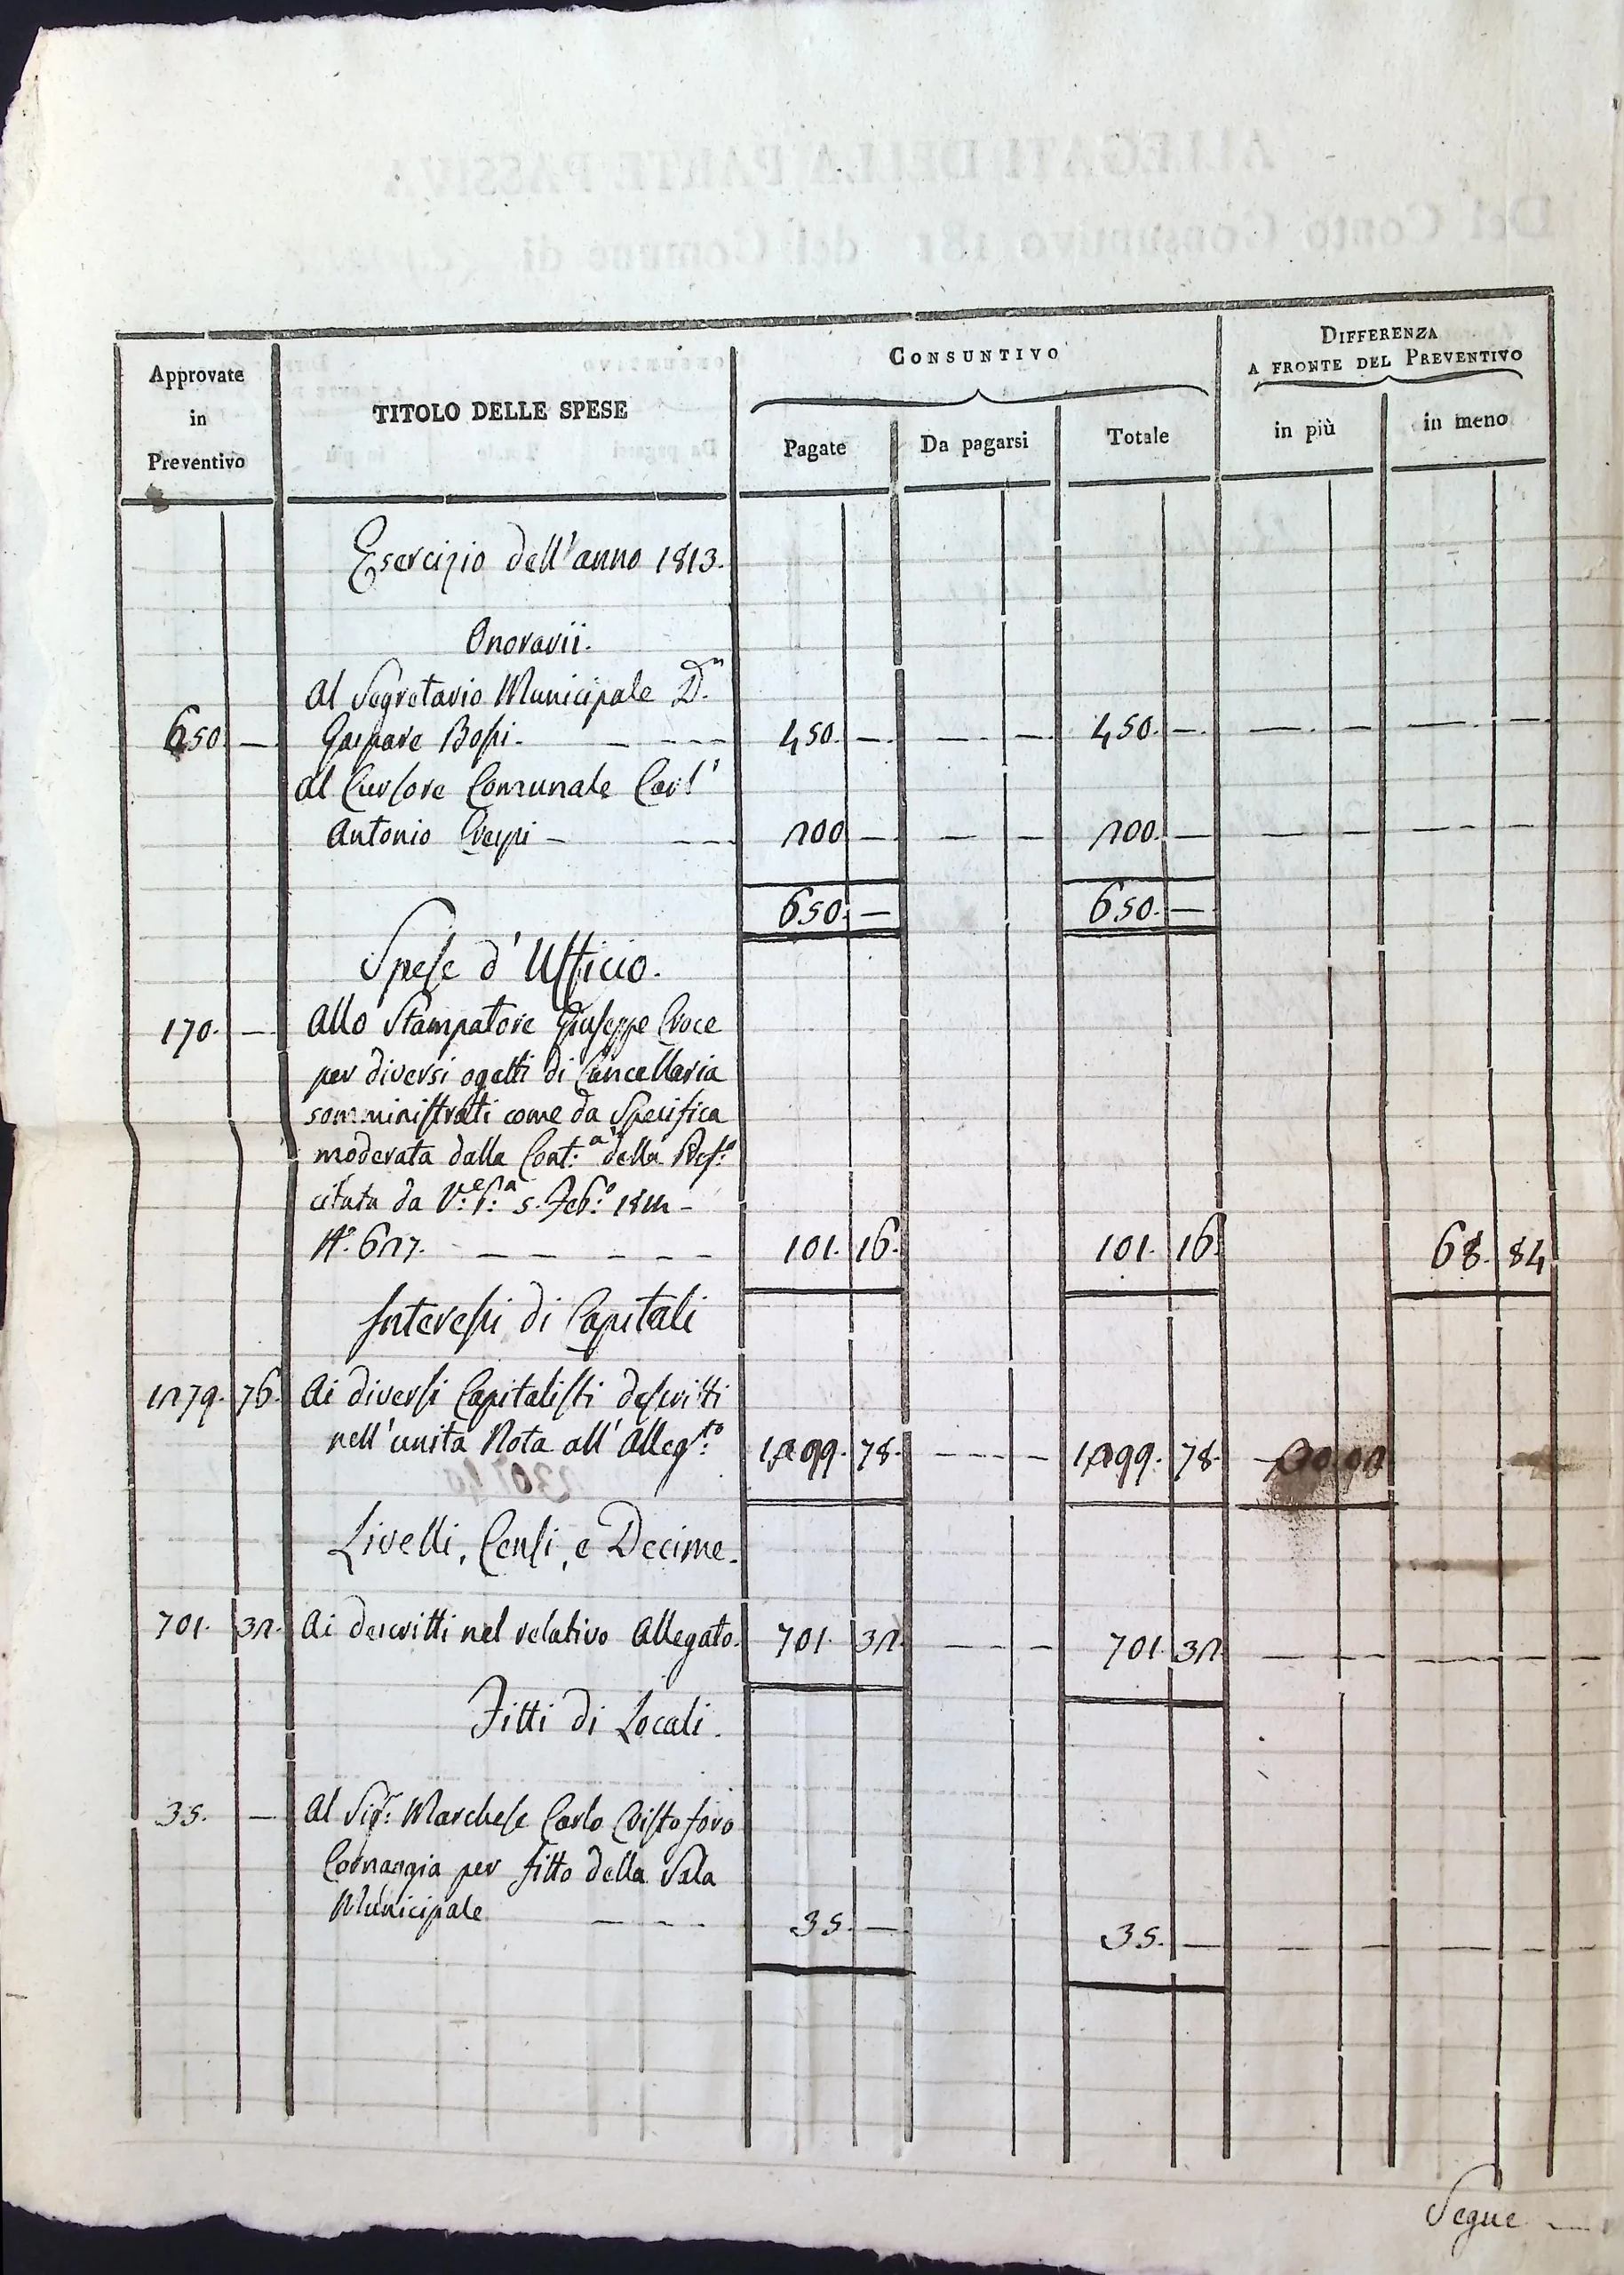 Approvate in Preventivo
TITOLO DELLE SPESE
CONSUNTIVO
DIFFERENZA
A FRONTE DEL PREVENTIVO
Pagate Da pagarsi Totale in più in meno
Esercizio dell'anno 1813.
Onorarii.
Al Segretario Municipale D.n
650 — Gaspare Bossi - — - - - 450. — — - — 450. — — . — — - —
Al Cursore Comunale Carl'
Antonio Crespi — - - - 200 — — — 200. — — — — - —
650. — 650. —
Spese d'Ufficio.
170. — Allo Stampatore Giuseppe Croce
per diversi ogetti di Cancellaria
somministrati come da Specifica
moderata dalla Cont.a della Pref.a
citata da
N.o 627. - — — — — — 101. 16. 101. 16. 68. 84
Interessi di Capitali
1279. 76. Ai diversi Capitalisti descritti
nell'unita Nota all'Alleg.to 1299. 78. - - - - 1299. 78.
Livelli, Censi, e Decime.
701. 32. Ai descritti nel relativo Allegato. 701. 32. — - - — 701. 32. — - - — - - —
Fitti di Locali.
35. — Al Sig.r Marchese Carlo Cristoforo
per fitto della Sala
Municipale — - - - 35. — 35. — — — — - —
Segue —